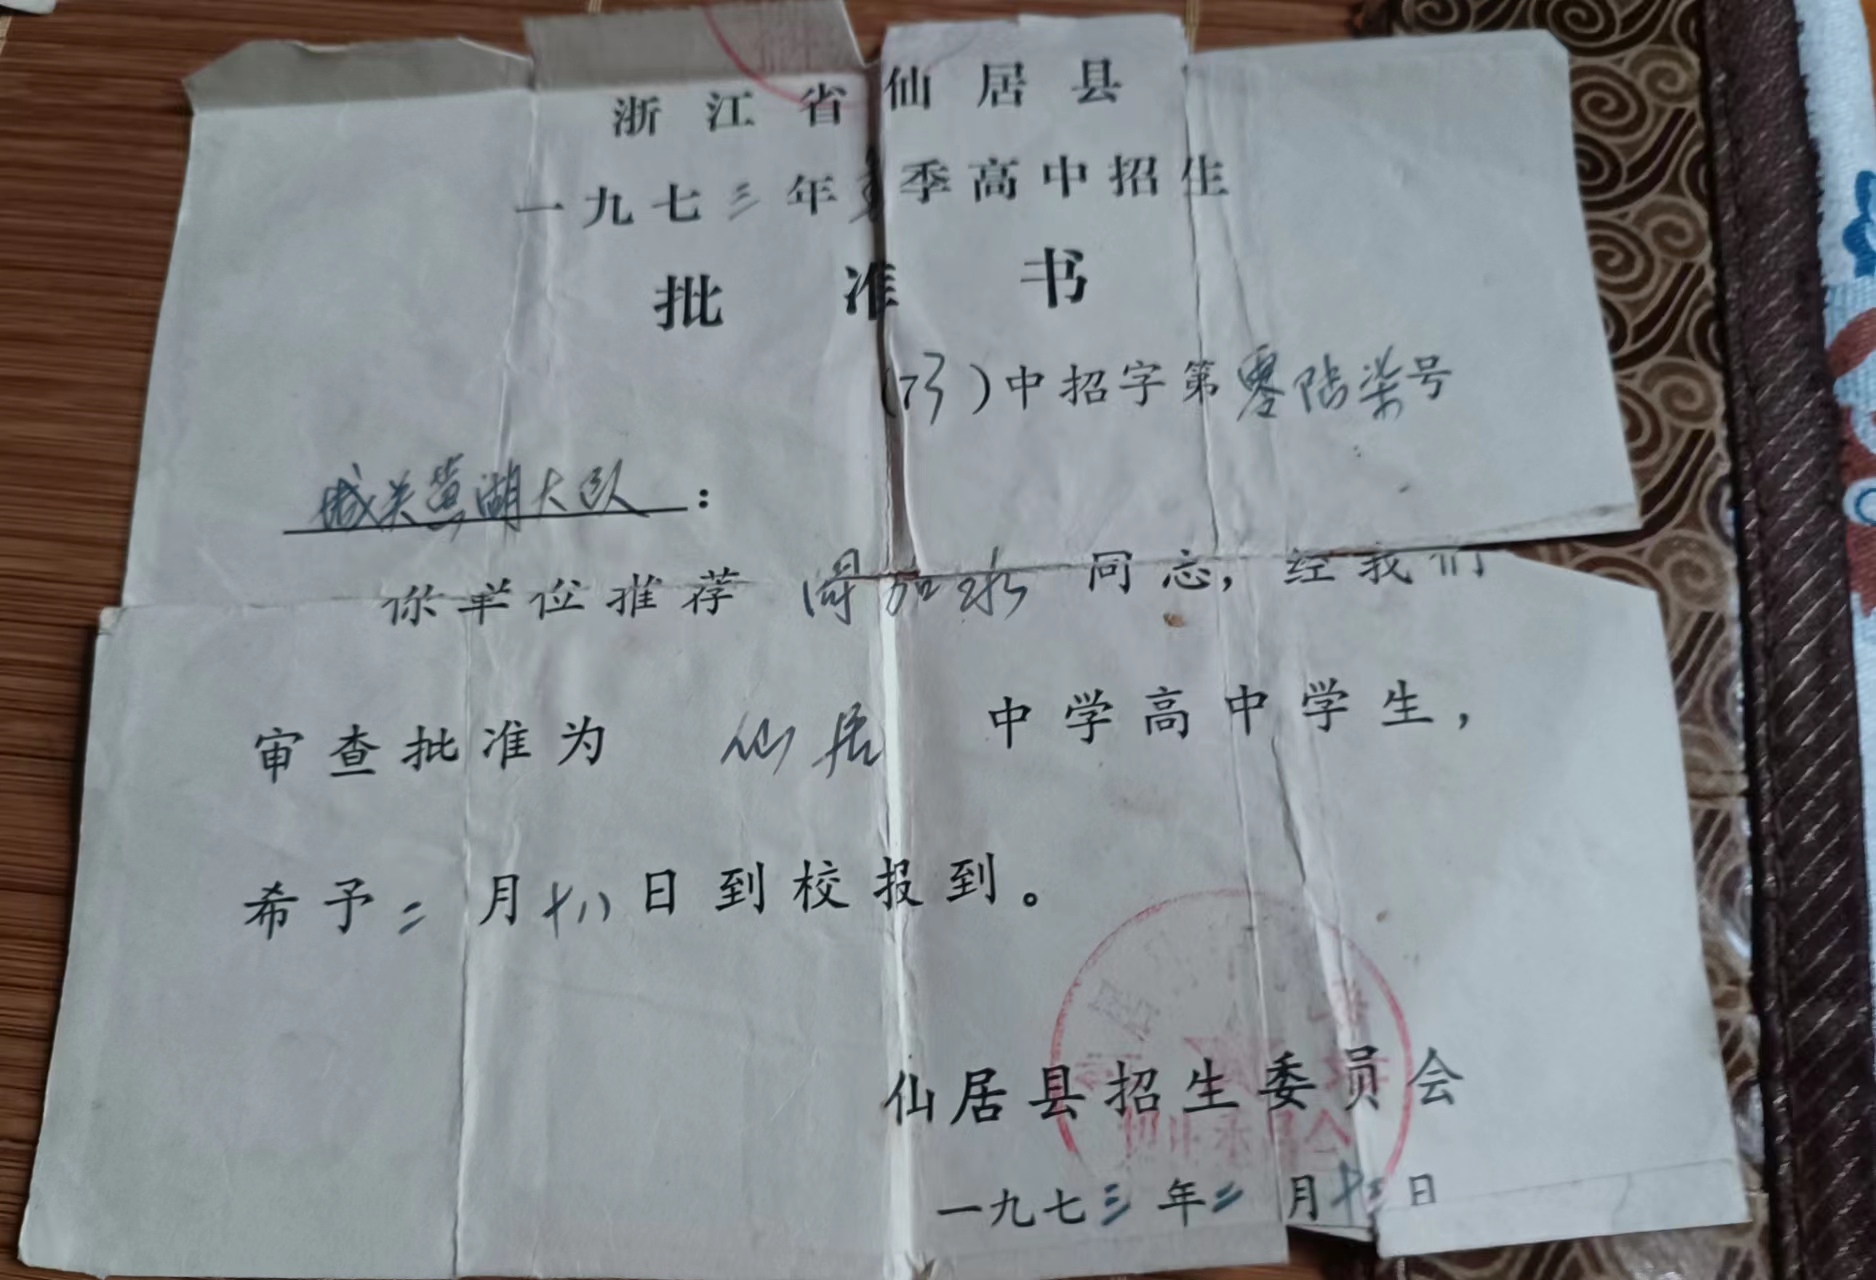 浙江省仙居县
一九七三年春季高中招生
批准书
(73)中招字第零陆柒号
城关黄湖大队:
你单位推荐 加水 同志,经我们
审查批准为 仙居 中学高中学生,
希予二月十八日到校报到。
仙居县招生委员会
一九七三年二月十三日